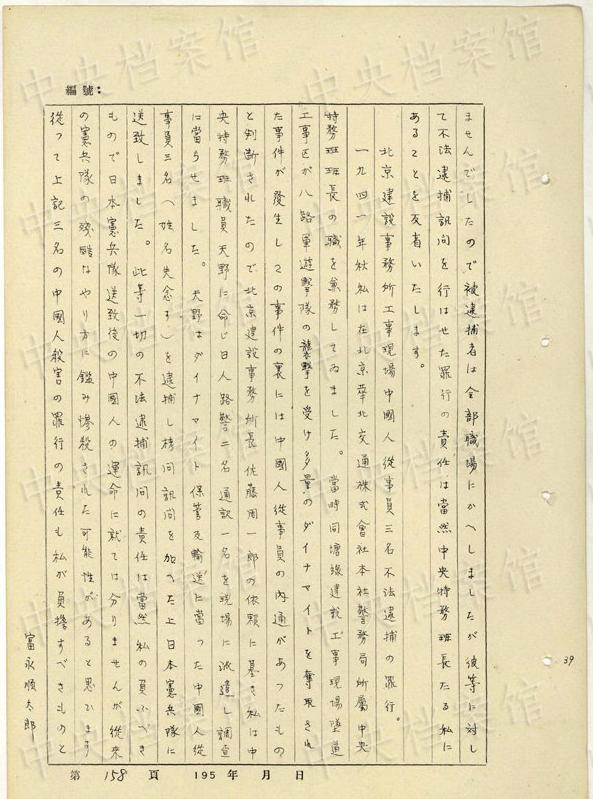 編號：
ませんでしたので被逮捕者は全部職場にかへしましたが彼等に対し
て不法逮捕訊问を行はせた罪行の責任は當然中央特務班長たる私に
あることを反省いたします。
北京建設事務所工事現場中國人從事員三名不法逮捕の罪行。
一九四一年秋私は在北京華北交通株式會社本社警務局所屬中央
特務班班長の職を兼務してゐました。當時同塘線建設工事現場隧道
工事区が八路軍遊撃隊の襲撃を受け多量のダイナマイトを奪取され
た事件が發生しこの事件の裏には中國人從事員の内通があつたもの
と判断されたので北京建設事務所長佐藤周一郎の依頼に基き私は中
央特務班職員天野に命じ日人路警二名通訳一名を現場に派遣し調查
に當らせました。天野はダイナマイト保管及輸送に當つた中國人從
事員三名（姓名失念す）を逮捕し拷问訊问を加へた上日本憲兵隊に
送致しました。此等一切の不法逮捕訊问の責任は當然私の負ふべき
もので日本憲兵隊送致後の中國人の運命に就ては分りませんが従来
の憲兵隊の残酷なやり方に鑑み惨殺された可能性があると思ひます
從つて上記三名の中國人殺害の罪行の責任も私が負擔すべきものと
富永順太郎
39
第 158 頁 195 年 月 日
中央档案馆